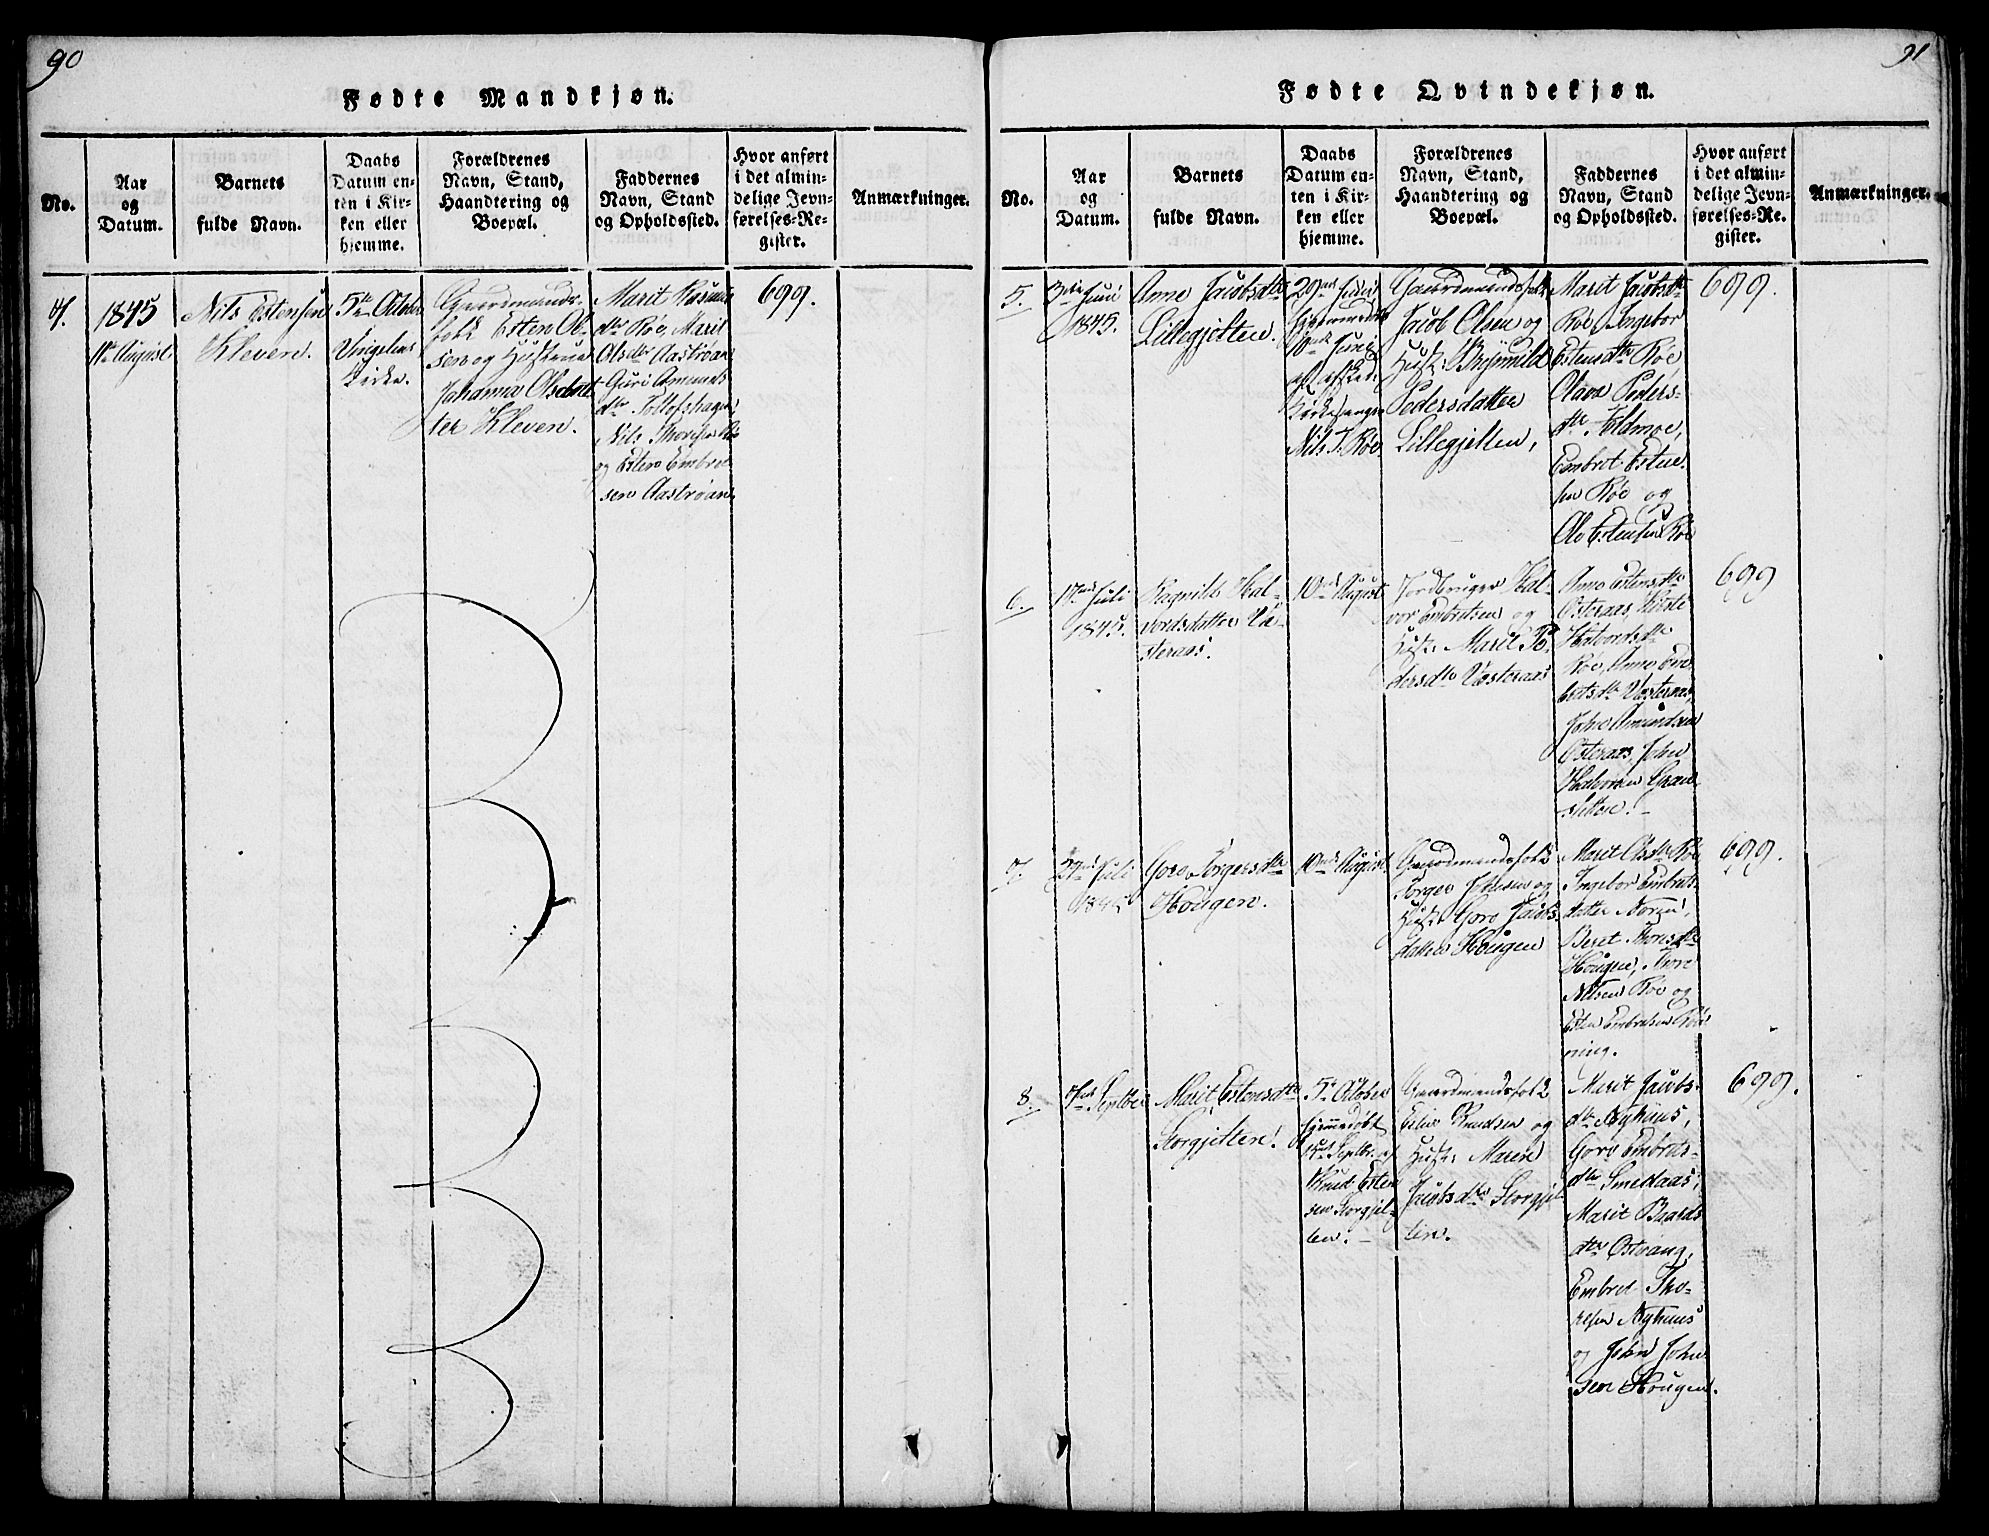 90
Fødte Mandkjøn.
No.
Aar
og
Datum.
Barnets
fulde Navn.
Daabs
Datum en-
ten i Kir-
ken eller
hjemme.
Forældrenes
Navn, Stand,
Haandtering og
Boepæl.
Faddernes
Navn, Stand
og Opholdssted.
Hvor anført
i det almin-
delige Jevn-
førelses-Re-
gister.
Anmærkninger.
1845
11te August
Nils Estensen
Kleven.
5te October
Vingelens
Kirke.
Gaardmands-
folk Esten Ol-
sen og Hustrue
Johanna Olsdat-
ter Kleven.
Marit Rasmus
dtr Røe, Marit
Olsdtr Aastrøan
Guri Amunds
dtr Tollofshagen
Nils Thoresen Røe
og Esten Embret
sen Aastrøan
699.
91
Fødte Qvindekjøn.
No.
Aar
og
Datum.
Barnets
fulde Navn.
Daabs
Datum en-
ten i Kir-
ken eller
hjemme.
Forældrenes
Navn, Stand,
Haandtering og
Boepæl.
Faddernes
Navn, Stand
og Opholdssted.
Hvor anført
i det almin-
delige Jevn-
førelses-Re-
gister.
Anmærkninger.
5.
3die Juni
1845.
Anne Jacobsdtr
Lillegjelten.
29de Juni
hjemmedøbt
10de Juni
af
Kirkesanger
Nils T. Røe
Gaardmandsfolk
Jacob Olsen og
Hustr: Brynnild
Pedersdatter
Lillegjelten,
Marit Jacobsdtr
Røe, Ingebor
Estensdtr Røe
Olava Peders-
dtr Eldmoe,
Embret Esten-
sen Røe og
Ole Estensen Røe
699.
6.
17de Juli
1845.
Ragnild Hal-
vordsdatter Væ-
steraas.
10de August
Jordbruger Hal-
vor Embretsen og
Hustr: Marit Pe-
dersdtr Væsteraas
Anne Estensdtr
Østeraas, Kirste
Halvordsdtr
Røe, Anne Em-
bretsdtr Væsteraas,
John Amundsen
Østeraas, John
Halvorsen Gran-
sletten.
699
7.
27de Juli
1845
Goro Torgersdtr
Hougen.
10de August
Gaardmandsfolk
Torger Johnsen og
Hustr: Goro Jacobs-
datter Hougen
Marit Olsdtr Røe
Ingebor Embrets-
datter Norgu,
Beret Thoresdtr
Hougen, Thore
Nilsen Røe og
Esten Embretsen Røe
ning.
699.
8.
7de Septber
Marit Estensdtr
Storgjelten.
5te October
hjemmedøbt
15de Septbr: af
Knud Esten
sen Storgjel-
ten.
Gaardmandsfolk
Esten Knudsen og
Hustr: Maren
Jacobsdtr Storgjel
ten.
Marit Jacobs-
dtr Nyhuus,
Goro Embrets-
dtr Smedaas,
Marit Baards
dtr Østvang,
Embret Tho-
resen Nyhuus
og John John
sen Hougen.
699.